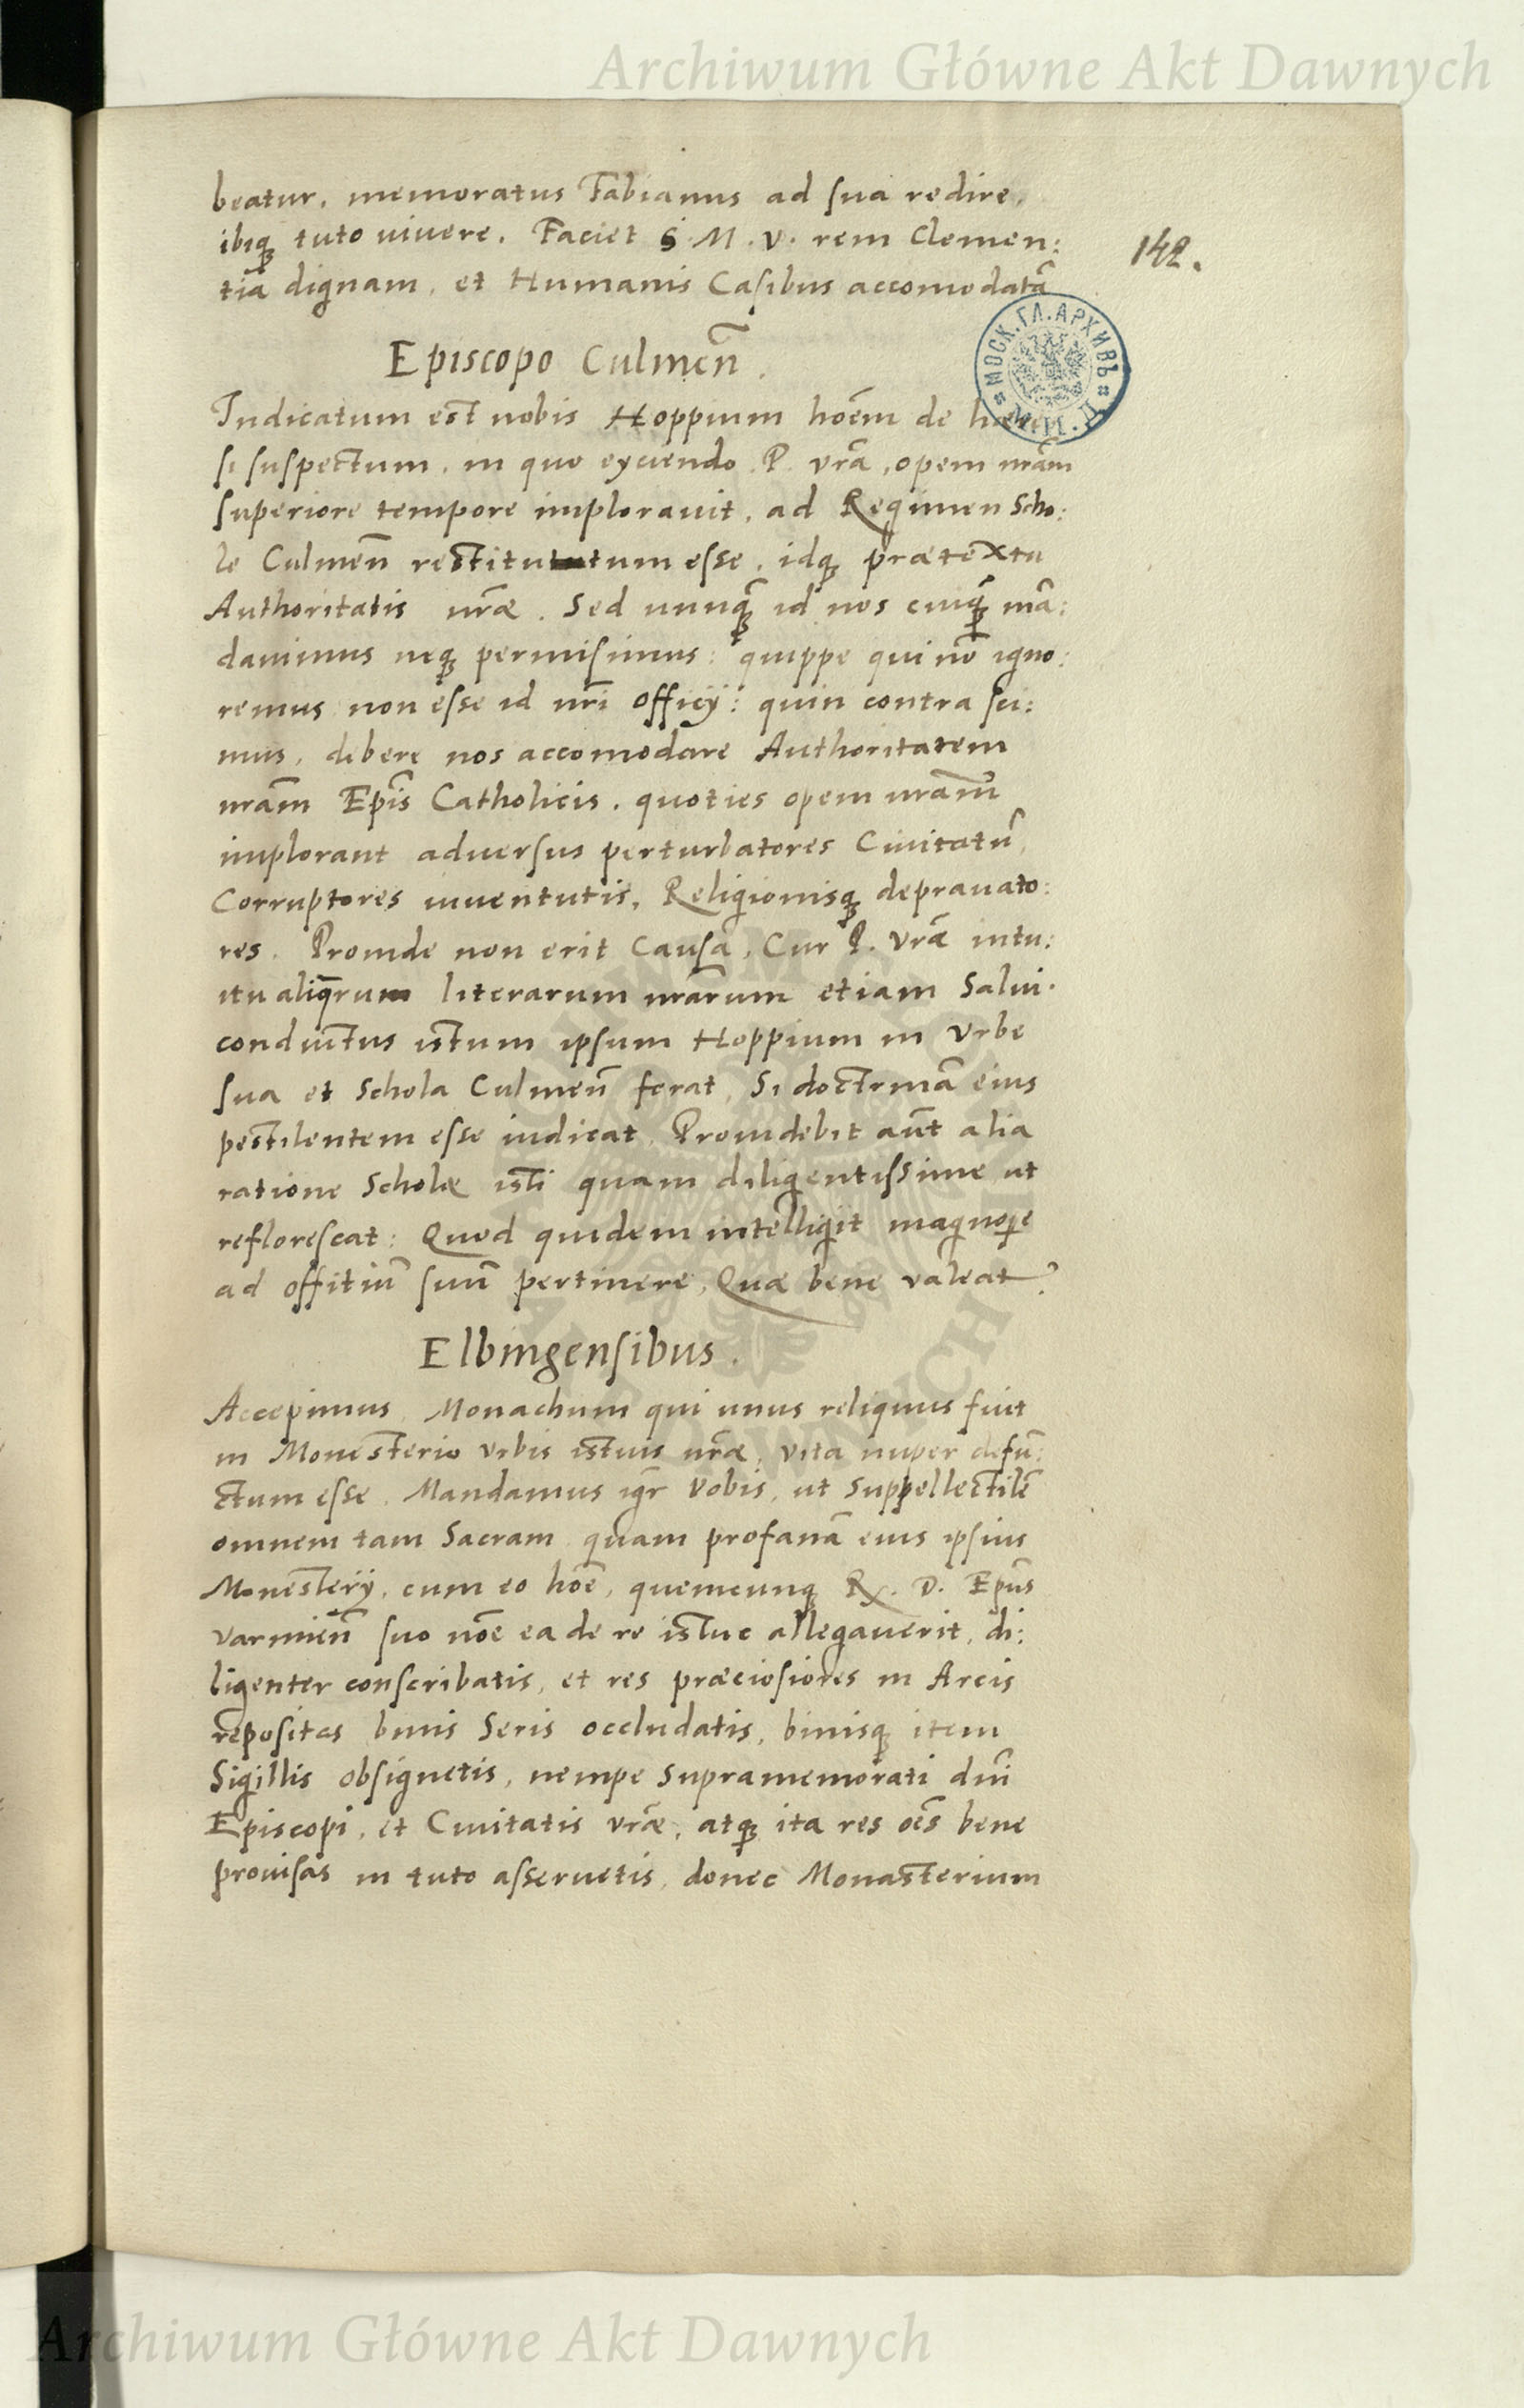 Archiwum Główne Akt Dawnych
beatur, memoratus Fabianus ad sua redire,
ibiq; tuto uiuere. Faciet S. M. V. rem Clemen:
tiã dignam, et Humanis Casibus accomodatã
142.
МОСК. ГЛ. АРХИВЪ
М. И. Д.
Episcopo Culmeñ.
Indicatum est nobis Hoppium hoẽm de
si suspectum, in quo eyciendo P. vrã, opem nrãm
superiore tempore implorauit, ad Regimen Scho:
le Culmeñ restitutum esse, idq; praetextu
Authoritatis nrãe. Sed nunq̃ id nos cuiq̃ mã:
dauimus neq; permisimus: quippe qui nõ igno:
remus non esse id nrĩ officÿ: quin contra sci:
mus, debere nos accomodare Authoritatem
nrãm Epĩs Catholicis, quoties opem nrãm
implorant aduersus perturbatores Ciuitatũ,
Corruptores iuuentutis, Religionisq; deprauato:
res. Proinde non erit Causa, Cur P. Vrã intu:
itu aliq̃rum literarum nrãrum etiam Salui
conductus istum ipsum Hoppium in Vrbe
sua et Schola Culmeñ ferat, Si doctrinã eius
pestilentem esse iudicat. Prouidebit aũt alia
ratione Scholæ isti quam diligentissime ut
reflorescat: Quod quidem intelligit magnope
ad offitiũ suũ pertinere, Quæ bene valeat.
Elbingensibus.
Accepimus, Monachum qui unus reliquus fuit
in Monesterio Vrbis istuis nrãe, vita nuper defũ:
ctum esse. Mandamus igr̃ Vobis, ut Suppellectilẽ
omnem tam Sacram quam profanã eius ipsius
Monesterÿ, cum eo hoẽ, quemcunq; R. D. Epũs
varmieñ suo noẽ ea de re istuc allegauerit, di:
ligenter conscribatis, et res præciosiores in Arcis
repositas binis Seris occludatis, binisq; item
Sigillis obsignetis, nempe supramemorati dñi
Episcopi, et Ciuitatis vrãe, atq; ita res oẽs bene
prouisas in tuto asseruetis, donec Monasterium
Archiwum Główne Akt Dawnych